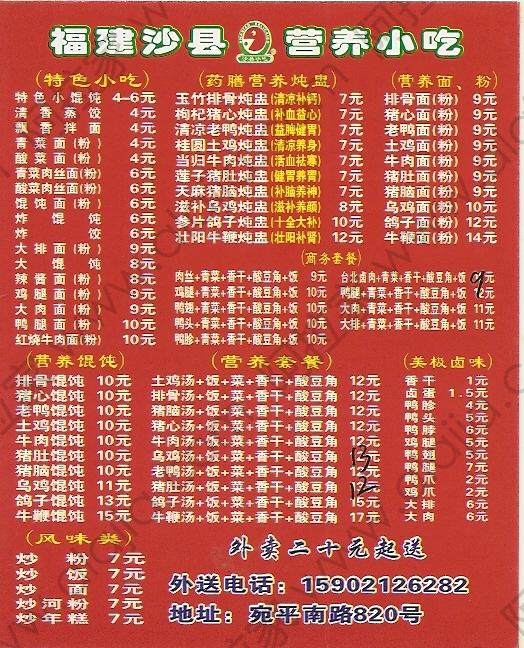 福建沙县 营养小吃
(特色小吃)
特色小馄饨 4—6元
清香蒸饺 4元
飘香拌面 4元
青菜面(粉) 4元
酸菜面(粉) 4元
青菜肉丝面(粉) 6元
酸菜肉丝面(粉) 6元
馄饨面(粉) 6元
炸馄饨 6元
炸饺 6元
大排面(粉) 9元
大馄饨 8元
辣酱面(粉) 8元
鸡腿面(粉) 9元
大肉面(粉) 9元
鸭腿面(粉) 10元
红烧牛肉面(粉) 10元
(药膳营养炖盅)
玉竹排骨炖盅(清凉补钙) 7元
枸杞猪心炖盅(补血益心) 7元
清凉老鸭炖盅(益脾健胃) 7元
桂圆土鸡炖盅(清凉养身) 7元
当归牛肉炖盅(活血祛寒) 7元
莲子猪肚炖盅(健胃养胃) 7元
天麻猪脑炖盅(补脑养神) 7元
滋补乌鸡炖盅(滋补养颜) 8元
参片鸽子炖盅(十全大补) 10元
壮阳牛鞭炖盅(壮阳补肾) 12元
(营养面、粉)
排骨面(粉) 9元
猪心面(粉) 9元
老鸭面(粉) 9元
土鸡面(粉) 9元
牛肉面(粉) 9元
猪肚面(粉) 9元
猪脑面(粉) 9元
乌鸡面(粉) 10元
鸽子面(粉) 12元
牛鞭面(粉) 14元
(商务套餐)
肉丝+青菜+香干+酸豆角+饭 9元
鸡腿+青菜+香干+酸豆角+饭 10元
鸭翅+青菜+香干+酸豆角+饭 10元
鸭头+青菜+香干+酸豆角+饭 10元
鸭胗+青菜+香干+酸豆角+饭 10元
台北卤肉+青菜+香干+酸豆角+饭 9元
鸭腿+青菜+香干+酸豆角+饭 元
大肉+青菜+香干+酸豆角+饭 11元
大排+青菜+香干+酸豆角+饭 11元
(营养馄饨)
排骨馄饨 10元
猪心馄饨 10元
老鸭馄饨 10元
土鸡馄饨 10元
牛肉馄饨 10元
猪肚馄饨 10元
猪脑馄饨 10元
乌鸡馄饨 11元
鸽子馄饨 13元
牛鞭馄饨 15元
(营养套餐)
土鸡汤+饭+菜+香干+酸豆角 12元
排骨汤+饭+菜+香干+酸豆角 12元
猪脑汤+饭+菜+香干+酸豆角 12元
猪心汤+饭+菜+香干+酸豆角 12元
牛肉汤+饭+菜+香干+酸豆角 12元
乌鸡汤+饭+菜+香干+酸豆角 13元
老鸭汤+饭+菜+香干+酸豆角 元
猪肚汤+饭+菜+香干+酸豆角 12元
鸽子汤+饭+菜+香干+酸豆角 15元
牛鞭汤+饭+菜+香干+酸豆角 17元
(美极卤味)
香干 1元
卤蛋 1.5元
鸭胗 4元
鸭头 5元
鸭脖 6元
鸡腿 5元
鸭翅 5元
鸭腿 7元
鸭爪 2元
鸡爪 2元
大排 6元
大肉 6元
(风味类)
炒粉 7元
炒饭 7元
炒面 7元
炒河粉 7元
炒年糕 7元
外卖二十元起送
外送电话：15902126282
地址：宛平南路820号